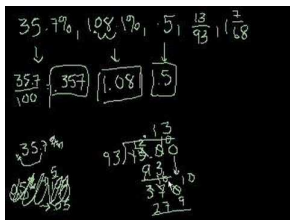 35.7%, 108.1%, .5, 13/93, 1 7/68
35.7/100 = .357 1.08 1.5
.13
35.7% 93 √13.00
5 93
.05 370 10
279